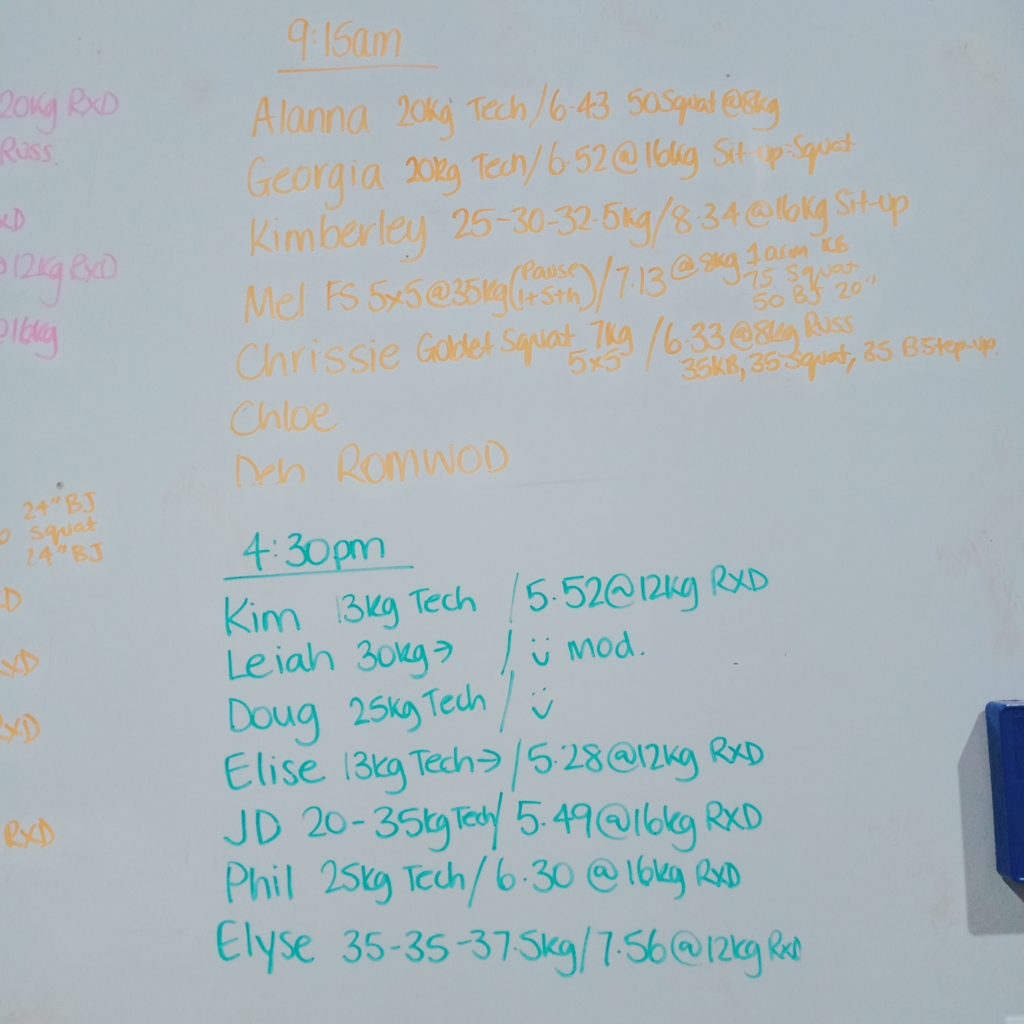 20kg RXD
Russ.
XD
@12kg RXD
@16kg
24" BJ
squat
24" BJ
D
XD
RXD
RXD
9:15am
Alanna 20kg Tech/6.43 50Squat@8kg
Georgia 20kg Tech/6.52@16kg Sit-up-Squat
Kimberley 25-30-32.5kg/8.34@16kg Sit-up
Mel FS 5x5@35kg(Pause 1+5th)/7.13@8kg 1 arm KB
75 Squat
50 BJ 20"
Chrissie Goblet Squat 7kg /6.33@8kg Russ
5x5 35KB, 35 Squat, 35 B.Step-up.
Chloe
Deh ROMWOD
4:30pm
Kim 13kg Tech /5.52@12kg RXD
Leiah 30kg→ / ü mod.
Doug 25kg Tech / ü
Elise 13kg Tech→/5.28@12kg RXD
JD 20-35kg Tech/ 5.49@16kg RXD
Phil 25kg Tech/6.30 @16kg RXD
Elyse 35-35-37.5kg/7.56@12kg RXD